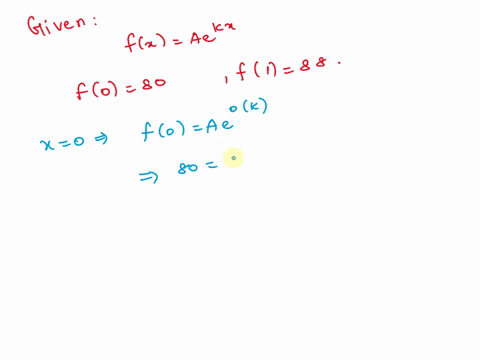 Given:
f(x) = Ae^{kx}
f(0) = 80 , f(1) = 88.
x=0 ⇒ f(0) = Ae^{0(k)}
⇒ 80 =